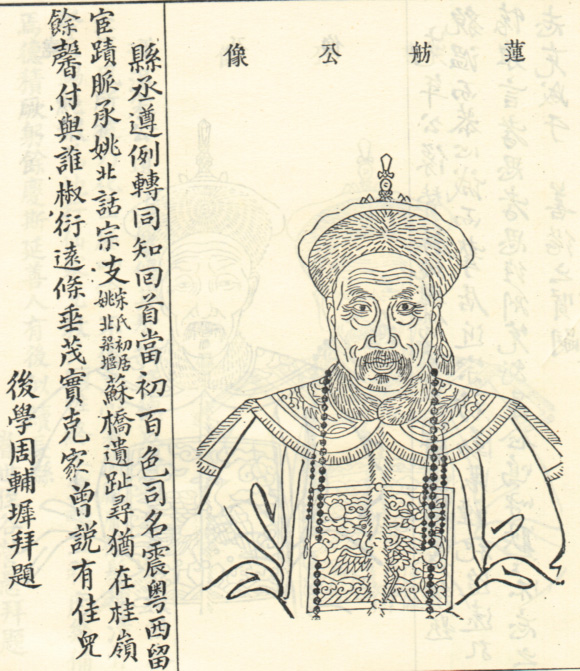 蓮舫公像
縣丞遵例轉同知回首當初百色司名震粵西留
宦蹟脈承姚北話宗支宋氏初居姚北梁堰蘇橋遺趾尋猶在桂嶺
餘馨付與誰椒衍遠條垂茂實克家曾説有佳兒
後學周輔墀拜題